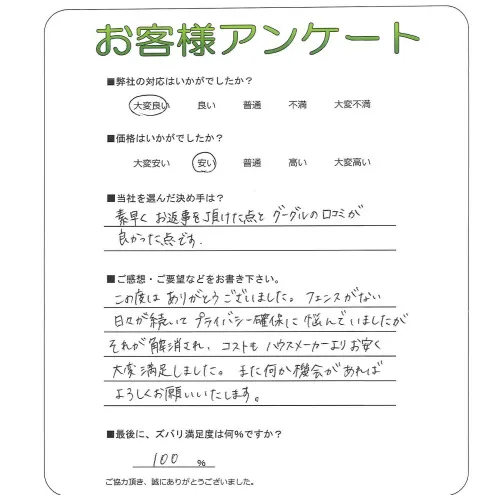 お客様アンケート
■弊社の対応はいかがでしたか？
大変良い 良い 普通 不満 大変不満
■価格はいかがでしたか？
大変安い 安い 普通 高い 大変高い
■当社を選んだ決め手は？
素早く お返事を頂けた点と グーグルの口コミが
良かった点です.
■ご感想・ご要望などをお書き下さい。
この度は ありがとうございました。フェンスがない
日々が続いて プライバシー確保に 悩んでいましたが
それが解消され、コストも ハウスメーカーよりお安く
大変満足しました。また何か機会があれば
よろしくお願いいたします。
■最後に、ズバリ満足度は何％ですか？
100 ％
ご協力頂き、誠にありがとうございました。